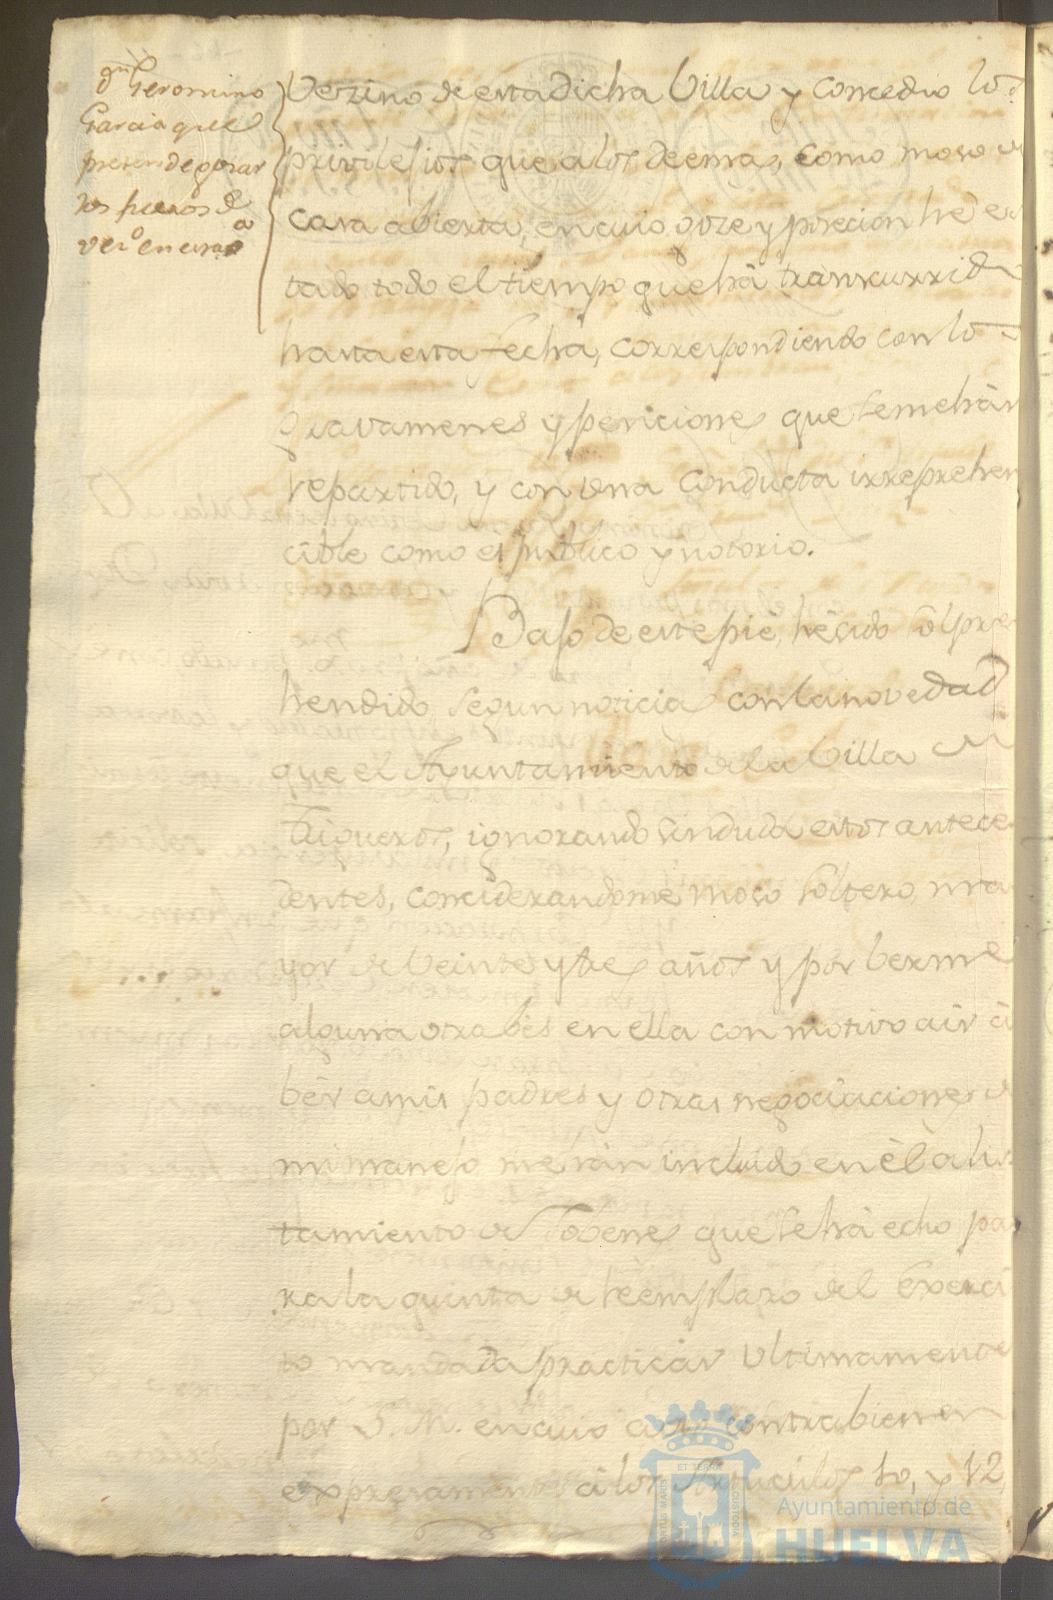 dn Geronimo
Garcia que
pretende gozar
los fueros de
vezo en esa
Vezino de esta dicha Villa y concedio los
privilejios que a los demas, como moso de
casa abierta, en cuio goze y posecion hé es
tado todo el tiempo que há transcurrido
hasta esta fecha, correspondiendo con los
gravamenes y penciones que se me hán
repartido, y con una conducta irreprehen
cible como es publico y notorio.
Bajo de este pié, hé sido solpre
hendido segun noticias con la novedad
que el Ayuntamiento de la Villa de
Trigueros, ignorando sin duda estos antece
dentes, conciderandome moso soltero, ma
yor de veinte y tres años y por berme
alguna otra bés en ella con motivo a ir á
bér a mis padres y otras negociaciones de
mi manejo me hán incluido en él alis
tamiento de Jobenes que se há echo pa
ra la quinta de Reemplazo del Exerci
to mandada practicár ultimamente
por S. M. en cuio caso contrabienen
expresamente á los Articulos 10, y 12,
ET TERRAE
PORTUS MARIS
CUSTODIA
Ayuntamiento de
HUELVA